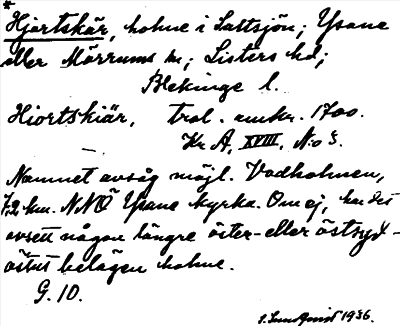 *
Hjortskär, holme i Saltsjön; Ysane
eller Mörrums sn; Listers hd;
Blekinge l.
Hiortskiär, trol. omkr. 1700.
Kr A, XVIII, No 3.
Namnet avsåg möjl. Vodholmen,
7,2 km. NNÖ Ysane kyrka. Om ej, har det
avsett någon längre öster- eller östsyd-
östut belägen holme.
G. 10.
S. Sundqvist 1936.